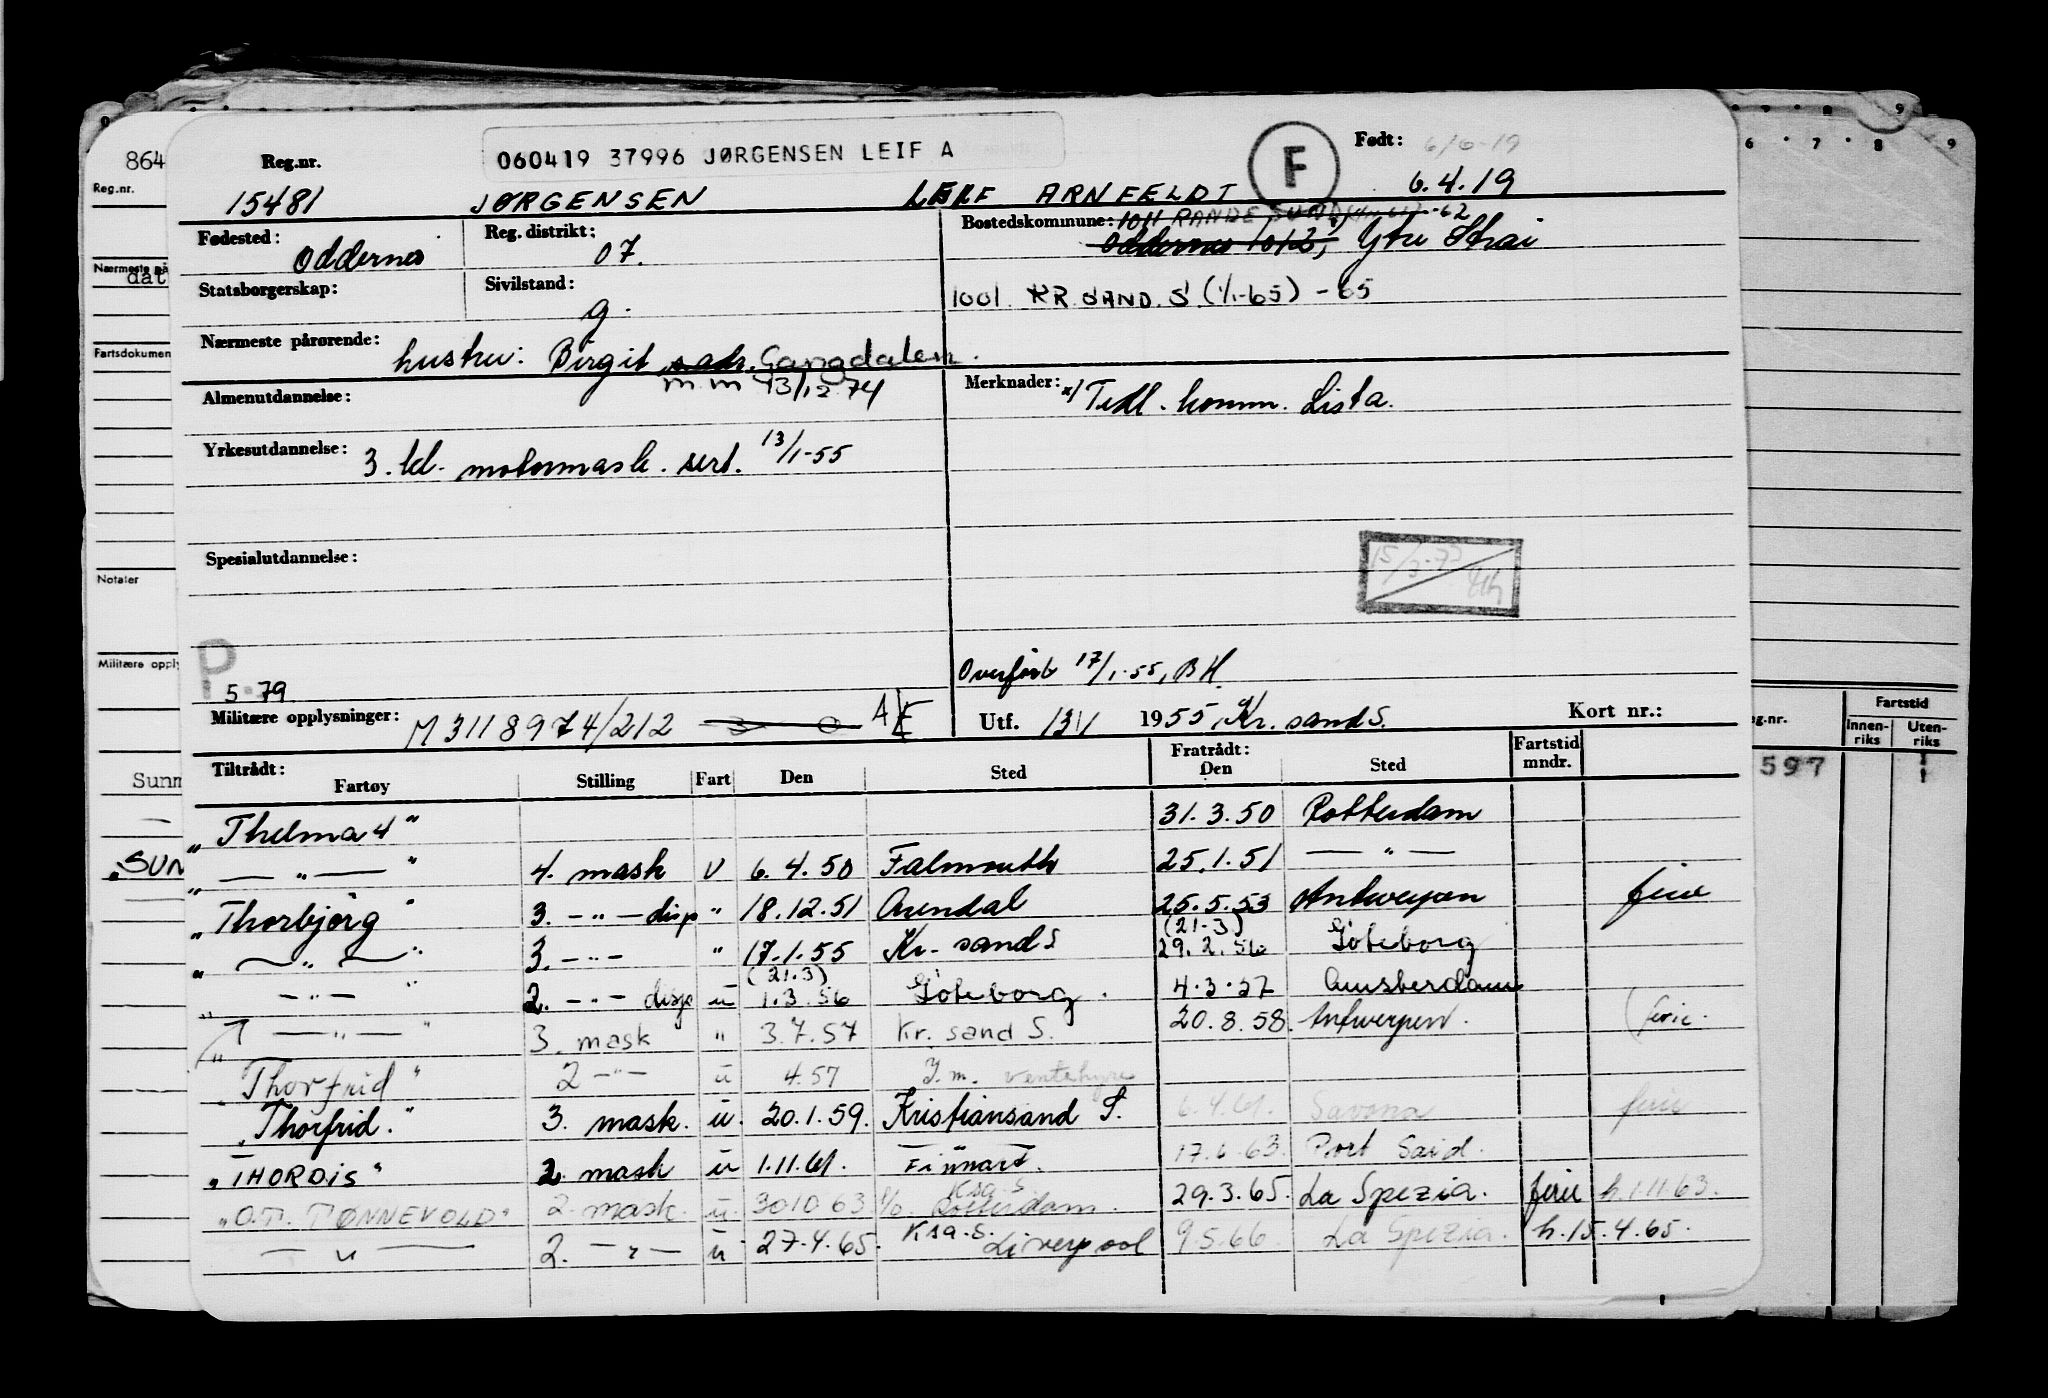 864
Reg.nr.
Nærmeste på
dat
Fartsdokumen
Notater
Militære opply
Sunm
"SUN
Reg.nr. 060419 37996 JØRGENSEN LEIF A F Født: 6/6-19
15481 JØRGENSEN LEIF ARNFELDT 6.4.19
Fødested: Oddernes Reg. distrikt: 07. Bostedskommune: 1011 RANDESUND -62
Oddernes 1012, Ytre Strai
Statsborgerskap: Sivilstand: g. 1001 KR.SAND.S (1/1-65) -65
Nærmeste pårørende: hustru: Birgit s.adr. Gangdalen.
m.m 13/12 74
Almenutdannelse: Merknader: x/ Tidl. komm. Lista.
Yrkesutdannelse: 3. kl. motormask. sert. 13/1-55
Spesialutdannelse: 15/3-77
P 5-79 Overført 17/1-55, BH
Militære opplysninger: M 3118974/212 A/E Utf. 13/1 1955, Kr. sand S. Kort nr.:
Tiltrådt: Fratrådt: Fartstid
Fartøy Stilling Fart Den Sted Den Sted mndr.
"Thelma 4" 31.3.50 Rotterdam
" — " — " 4. mask v 6.4.50 Falmouth 25.1.51 — " —
"Thorbjörg" 3. — " — disp " 18.12.51 Arendal 25.5.53 Antwerpen ferie
" — " — " 3. — " — " 17.1.55 Kr. sand S (21-3) 29.2.56 Göteborg
" — " — 2. — " — disp u (21.3) 1.3.56 Göteborg. 4.3.57 Amsterdam
" — " — " 3. mask " 3.7.57 Kr. sand S. 20.8.58. Antwerpen. ferie.
"Thorfrid" 2 — " — u 4.57 I.m. ventehyre
"Thorfrid." 3. mask. u. 20.1.59. Kristiansand S. 6.4.61. Savona ferie
"THORDIS" 2. mask u 1.11.61. Finnart. 17.6.63. Port Said.
"O.T. TØNNEVOLD" 2. mask. u. 30 10 63 P/o. Ksa. S Rotterdam. 29.3.65. La Spezia. ferie h. 1 11 63.
— " — 2. — " — u 27.4.65. Ksa. S. Liverpool 9.5.66 La Spezia. h. 15.4.65.
9
6 7 8 9
Fartstid
eg.nr. Innen-riks Uten-riks
597